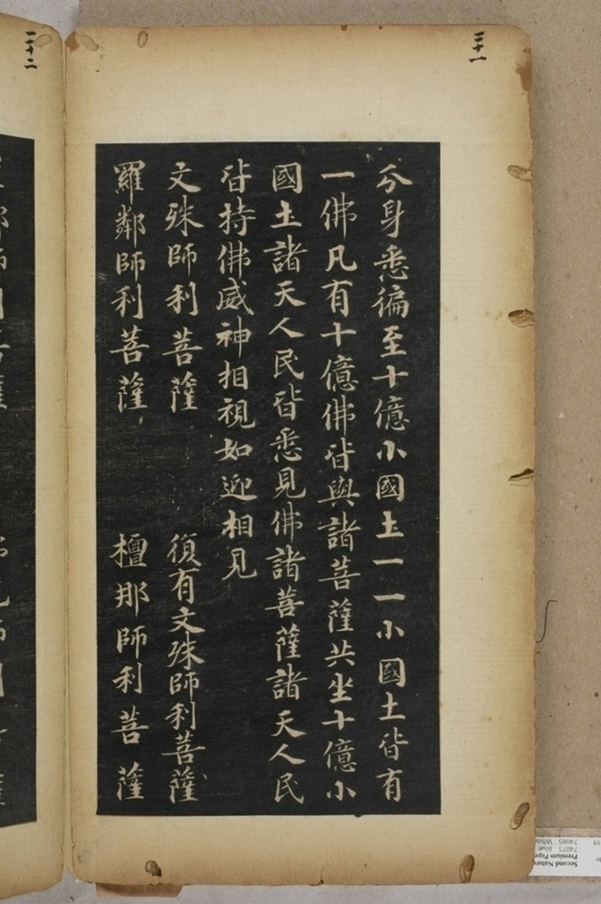 三十一
分身悉徧至十億小國土一一小國土皆有
一佛凡有十億佛皆與諸菩薩共坐十億小
國土諸天人民皆悉見佛諸菩薩諸天人民
皆持佛威神相視如迎相見
文殊師利菩薩 復有文殊師利菩薩
羅鄰師利菩薩 檀那師利菩薩
三十二
Second Nature
Premium Pape
74075 Blue
74085 White